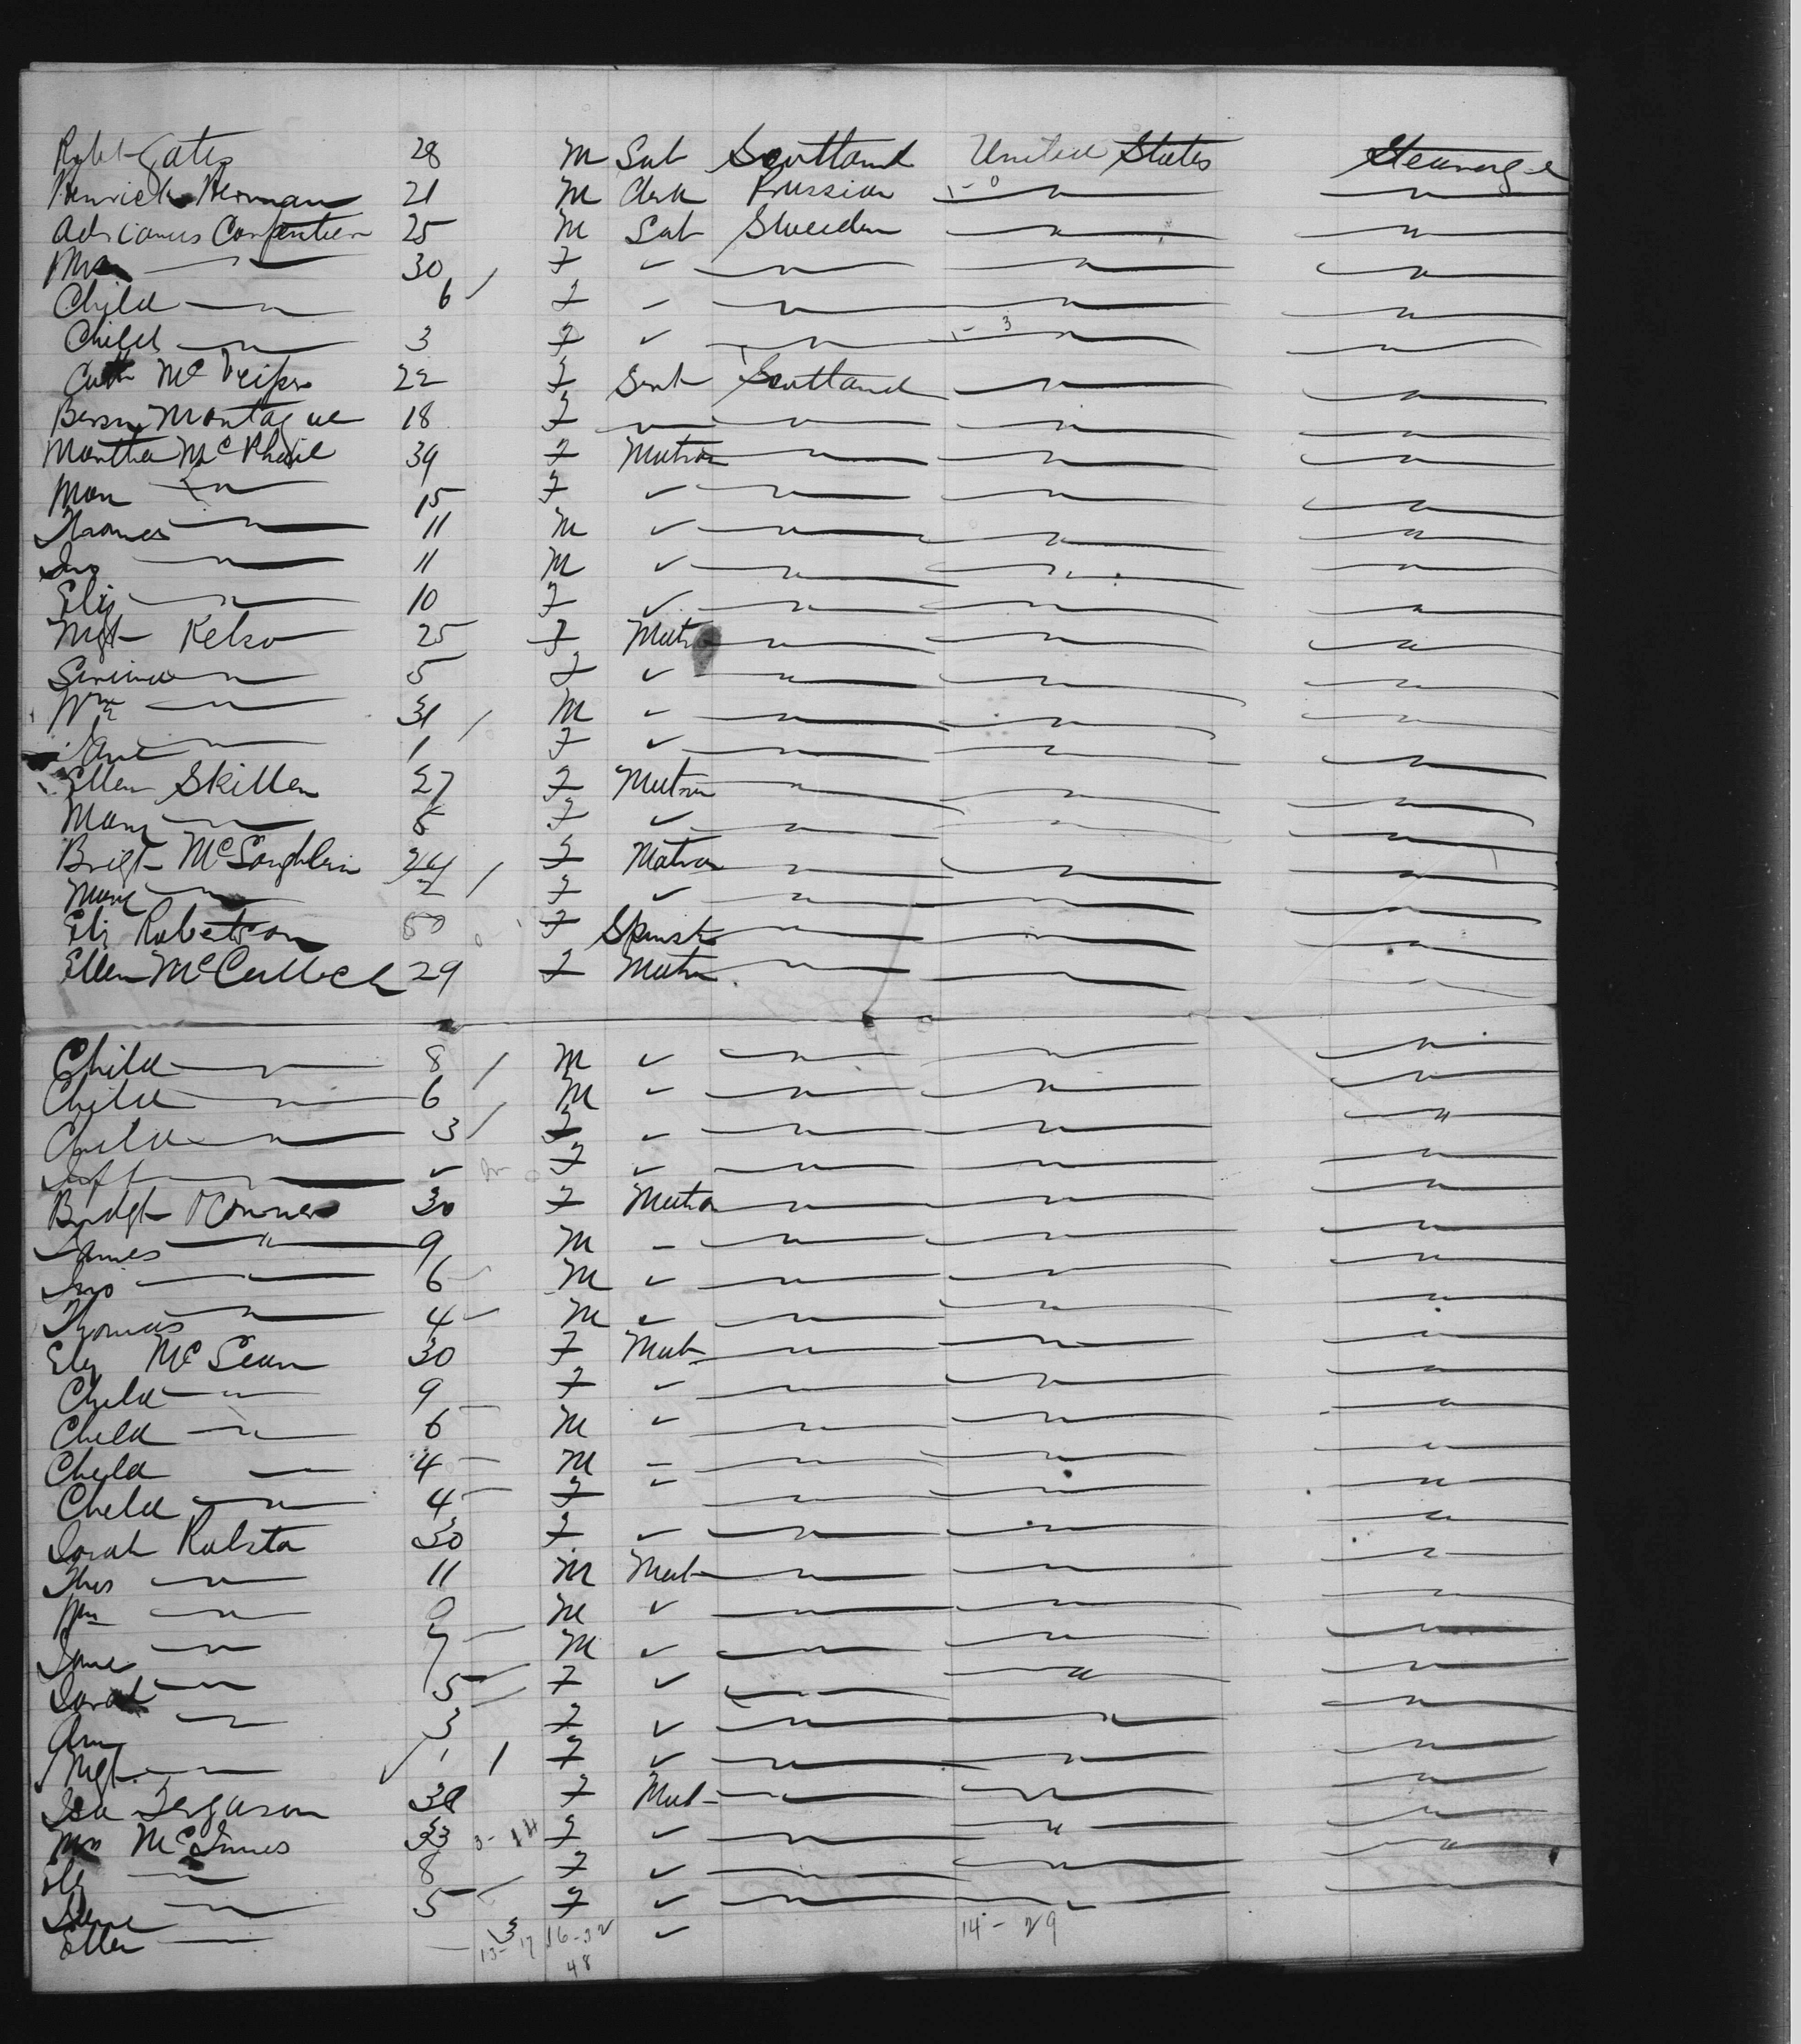 Robt Gates 28 M Lab Scotland United States Steerage
Henrick Herman 21 M Clerk Prussian - 0 " "
Adrianus Carpentier 25 M Lab Sweeden " "
Mrs " 30 / F " " " "
Child " 6 / F " " " "
Child " 3 F " " - 3 " "
Cath Mc 22 F Servt Scotland " "
Montague 18 F " " " "
Martha McPhail 39 F Matron " " "
Mary " 15 F " " " "
Thomas " 11 M " " " "
Jno " 11 M " " " "
Eliz " 10 F " " " "
Mgt Kelso 25 F Matron " " "
" 5 F " " " "
Wm " 31 / M " " " "
Jane " 1 F " " " "
Ellen Skillen 27 F Matron " " "
Mary " F " " " "
Bridgt McLoughlin 24 / F Matron " " "
Mary " 2 / F " " " "
Eliz Robertson 50 F Spinster " " "
Ellen McCulloch 29 F Matron " " "
Child " 8 / M " " " "
Child " 6 M " " " "
Child " 3 / F " " " "
Inft " F " " " "
Bridgt OConner 30 F Matron " " "
James " 9 M " " " "
Jno " 6 M " " " "
Thomas " 4 M " " " "
Eliz McLean 30 F Mat " " "
Child " 9 F " " " "
Child " 6 M " " " "
Child " 4 M " " " "
Child " 4 F " " " "
Sarah Ralston 30 F " " " "
Thos " 11 M Mat " " "
Wm " 9 M " " " "
" 7 M " " " "
Sarah " 5 F " " " "
Ann " 3 F " " " "
Mgt " 1 1 F " " " "
Isa Ferguson 38 F Mat " " "
Mrs McInnes 33 F " " " "
Eliz " 8 F " " " "
Jane " 5 F " " " "
Ellen " 13-17 16-32 " 14-29
48